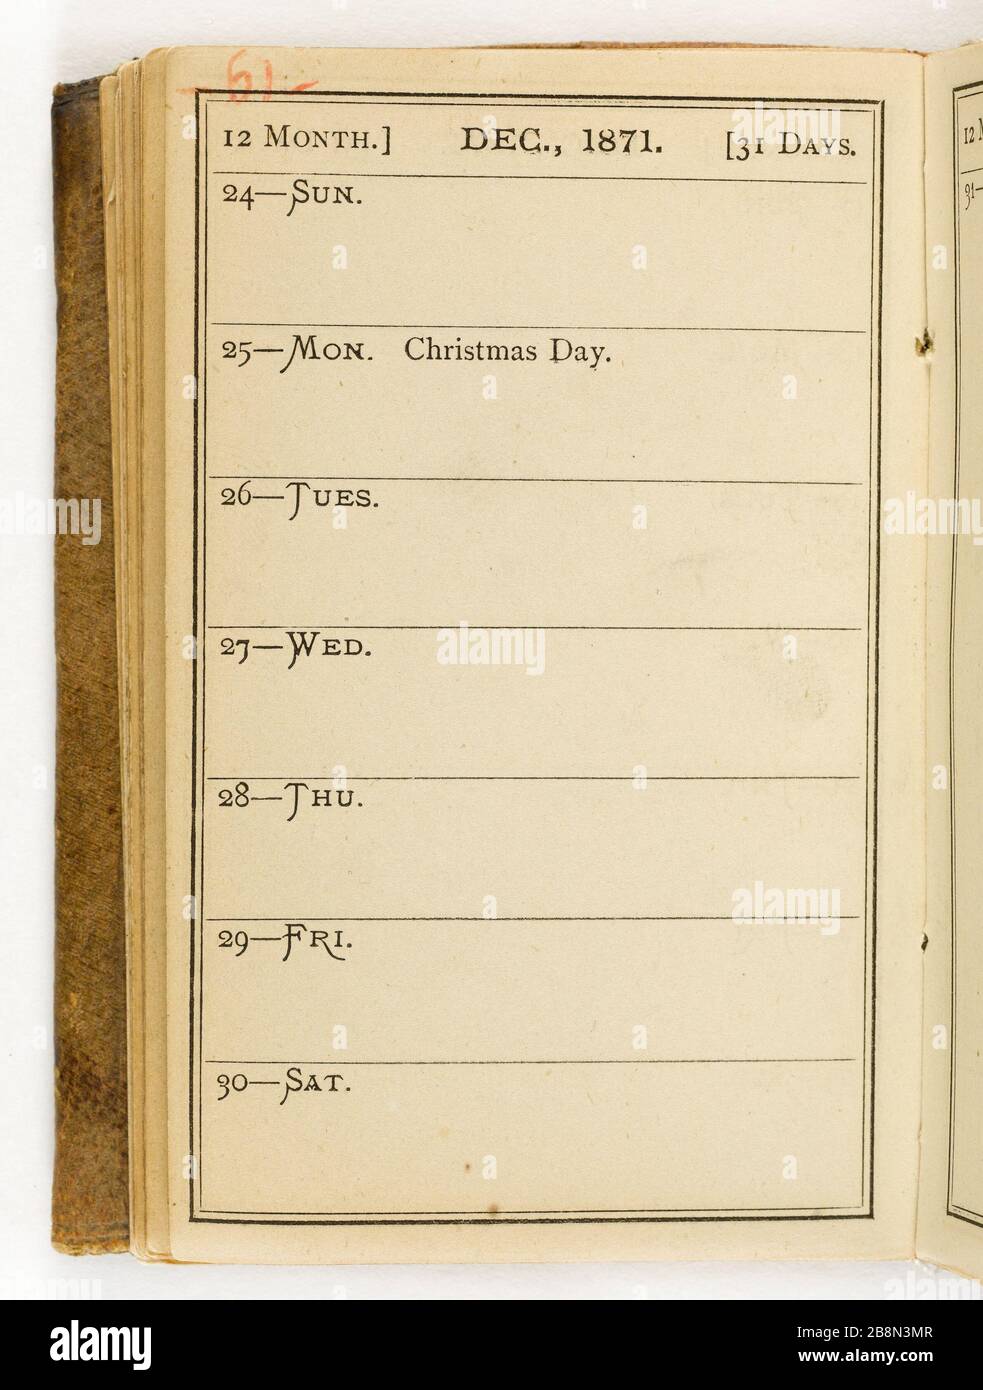 -61-
12 MONTH.] DEC., 1871. [31 DAYS.
24—SUN.
25—MON. Christmas Day.
26—TUES.
27—WED.
28—THU.
29—FRI.
30—SAT.
12 M
31—
alamy
alamy
Image ID: 2B8N3MR
www.alamy.com